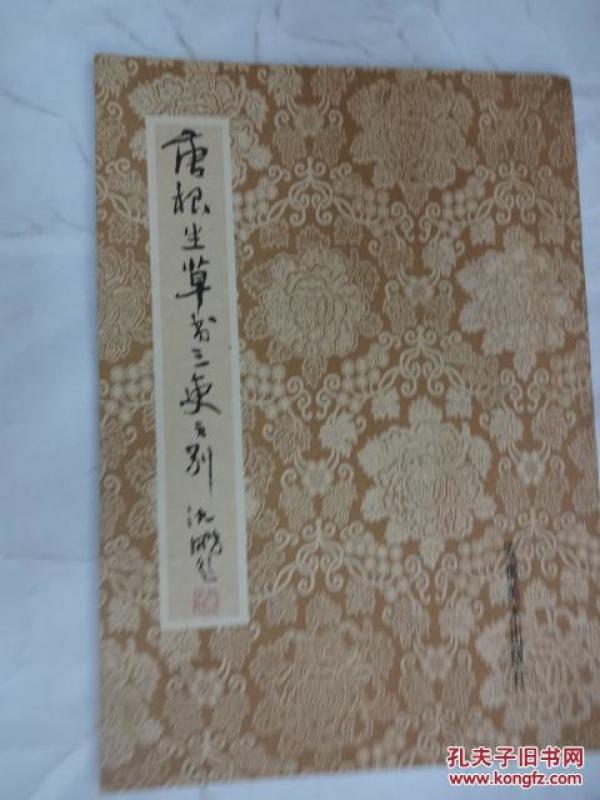 唐根生草书三吏三别 沈鹏题
孔夫子旧书网
www.kongfz.com